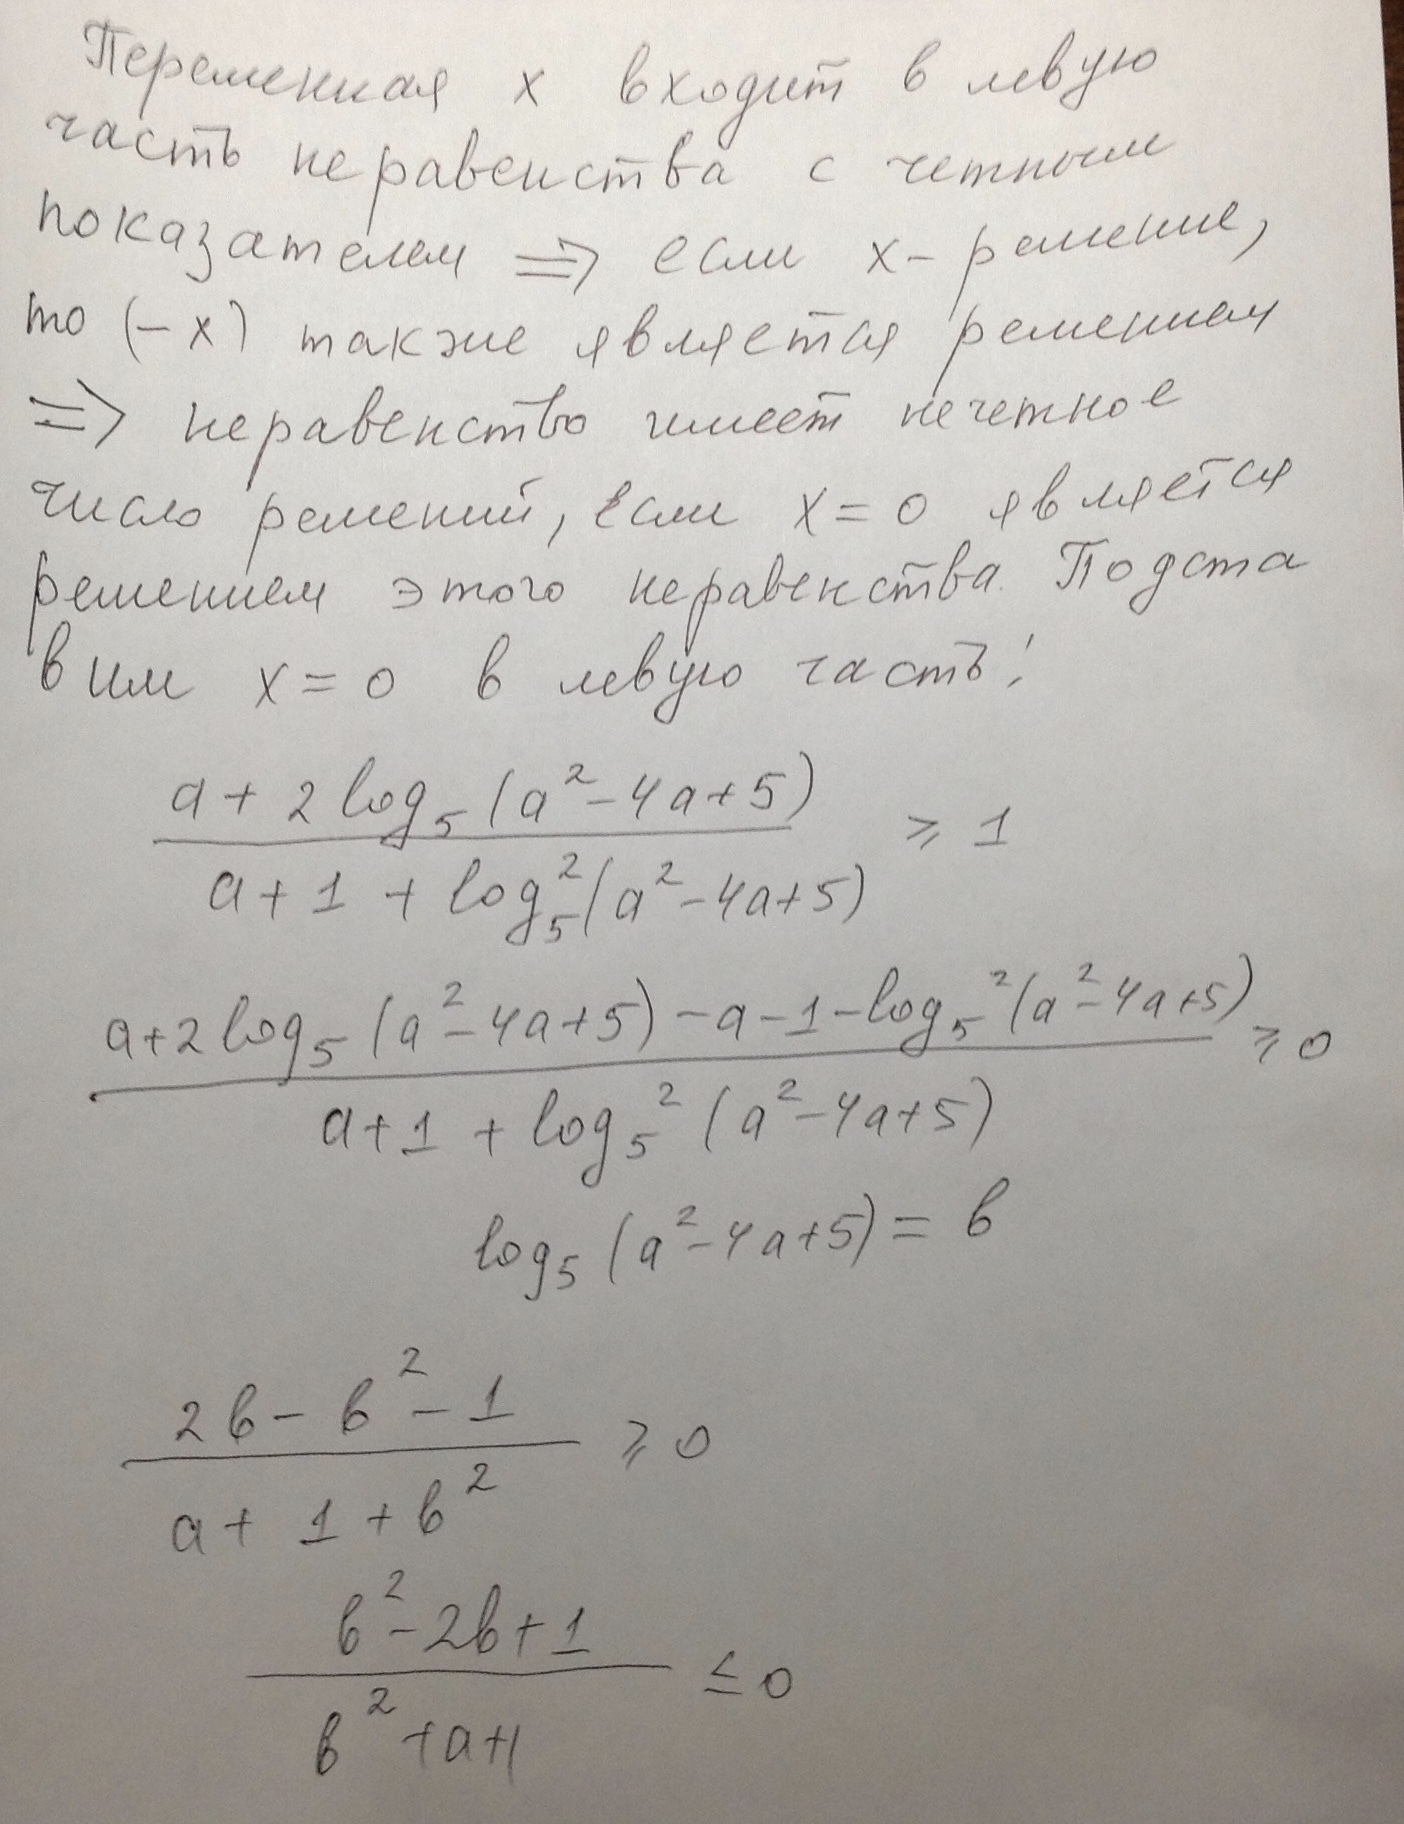 Переменная x входит в левую
часть неравенства с четным
показателем ⇒ если x - решение,
то (-x) также является решением
⇒ неравенство имеет нечетное
число решений, если x = 0 является
решением этого неравенства. Подста
вим x = 0 в левую часть:
a + 2 log₅ (a² - 4a + 5)
a + 1 + log₅² (a² - 4a + 5) ≥ 1
a + 2 log₅ (a² - 4a + 5) - a - 1 - log₅² (a² - 4a + 5)
a + 1 + log₅² (a² - 4a + 5) ≥ 0
log₅ (a² - 4a + 5) = b
2b - b² - 1
a + 1 + b² ≥ 0
b² - 2b + 1
b² + a + 1 ≤ 0